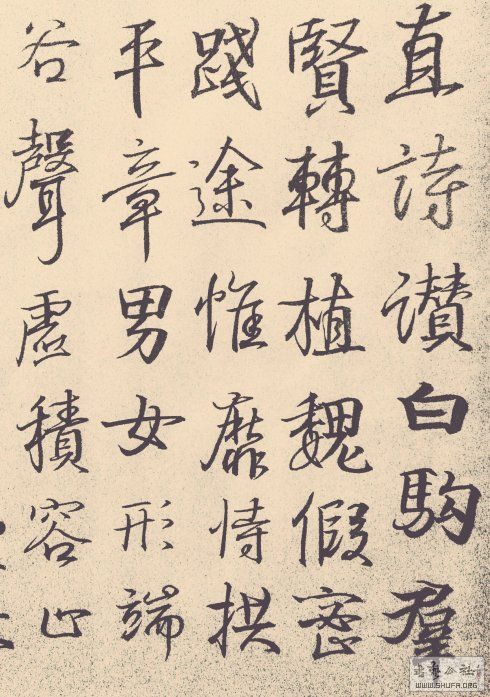 直詩讚白駒羣
賢轉植魏假密
踐途惟靡恃拱
平章男女形端
谷聲虛積容止
WWW.SHUFA.ORG